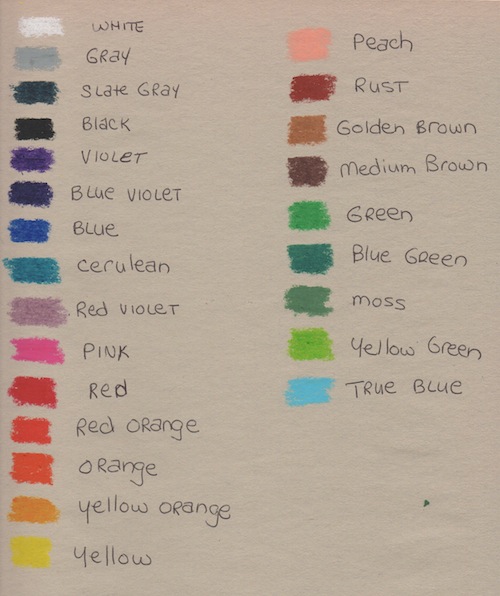 WHITE
GRAY
SLATE GRAY
Black
VIOLET
BLUE VIOLET
BLUE
cerulean
Red VIOLET
PINK
Red
Red ORange
ORange
yellow ORange
yellow
Peach
RUST
Golden Brown
medium Brown
GReen
Blue GReen
moss
yellow Green
TRUE BLUE